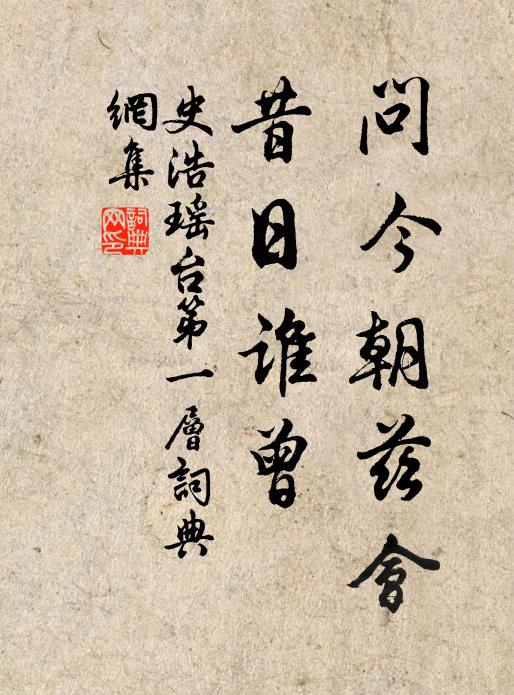 問今朝茲會
昔日誰曾
史浩瑶台第一層詞典
網集
詞典
网印